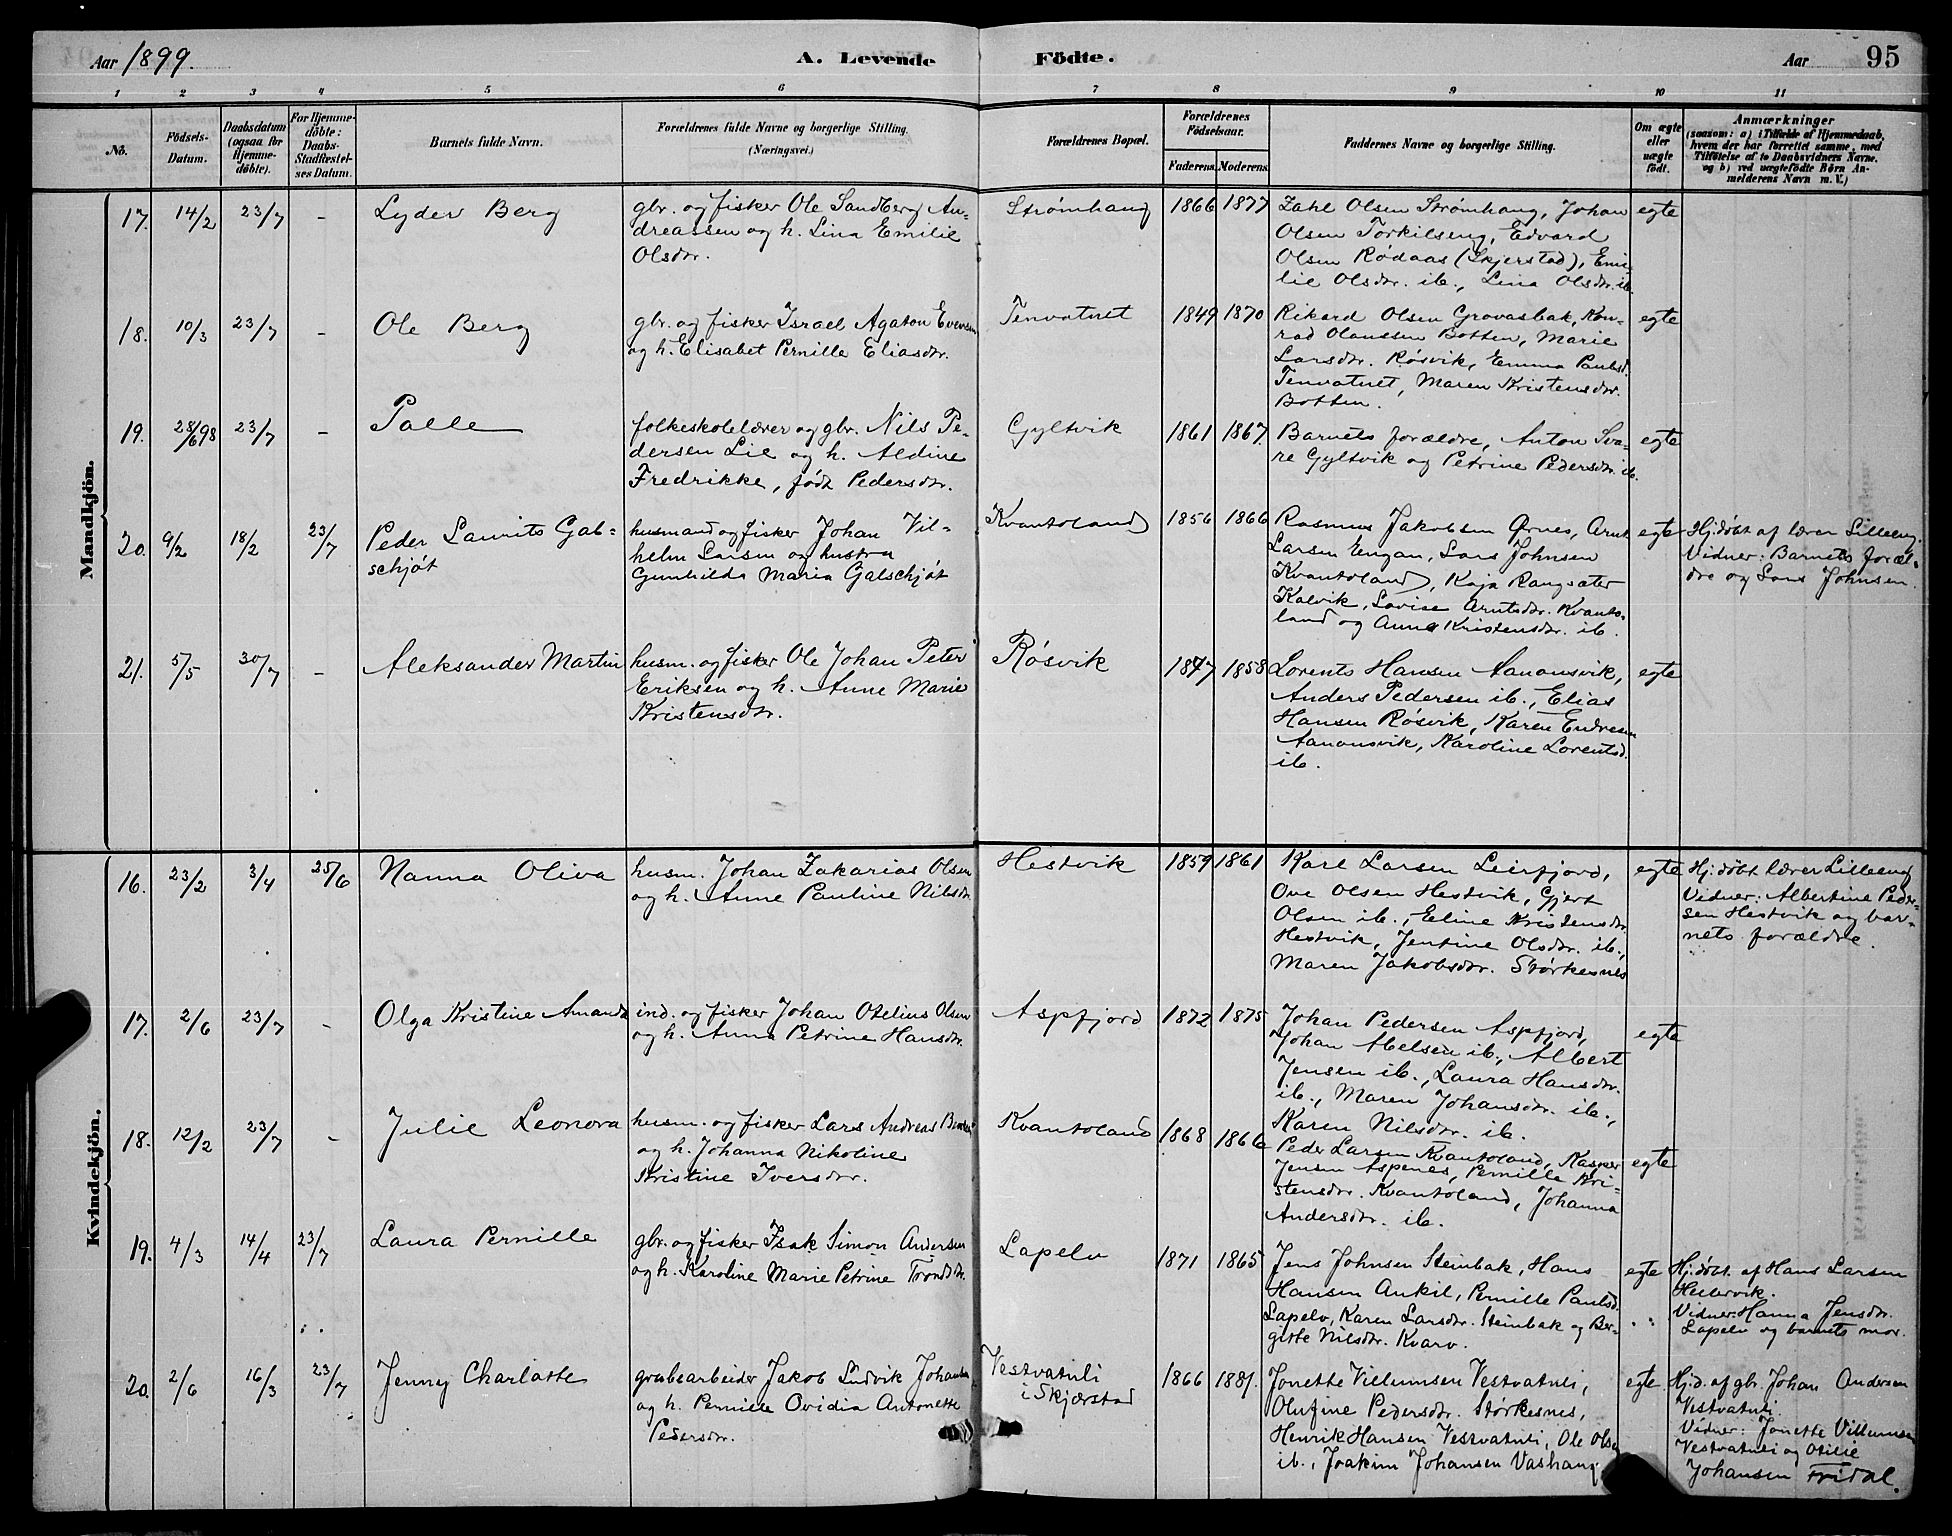 Aar 1899.
A. Levende
Födte.
Aar
95
1 2 3 4 5 6 7 8 9 10 11
No.
Födsels-
Datum.
Daabsdatum
(ogsaa for
Hjemme-
døbte).
For Hjemme-
døbte:
Daabs-
Stadfæstel-
ses Datum.
Barnets fulde Navn.
Forældrenes fulde Navne og borgerlige Stilling.
(Næringsvei.)
Forældrenes Bopæl.
Forældrenes
Fødselsaar.
Faderens. Moderens.
Faddernes Navne og borgerlige Stilling.
Om ægte
eller
uægte
født.
Anmærkninger
(saasom: a) i Tilfælde af Hjemmedaab,
hvem der har forrettet samme, med
Tilføielse af to Daabsvidners Navne.
og b) ved uægtefødte Børn An-
melderens Navn m. V.)
Mandkjön.
17. 14/2 23/7 - Lyder Berg
gbr. og fisker Ole Sandberg An-
dreassen og h. Lina Emilie
Olsdtr.
Strømhaug 1866 1877
Zahl Olsen Strømhaug, Johan
Olsen Torkilseng, Edvard
Olsen Rødaas (Skjerstad), Emi-
lie Olsdtr. ib., Lina Olsdtr. ib.
egte
18. 10/3 23/7 - Ole Berg
gbr. og fisker Israel Agaton Evensen
og h. Elisabet Pernille Eliasdtr.
Tenvatnet 1849 1870
Rikard Olsen Grovasbak, Kon-
rad Olaussen Botten, Marie
Larsdtr. Røsvik, Emma Paulsd.
Tenvatnet, Maren Kristensdtr.
Botten.
egte
19. 28/6 98 23/7 - Palle
folkeskolelærer og gbr. Nils Pe-
dersen Lie og h. Aldine
Fredrikke, født Pedersdtr.
Gyltvik 1861 1867.
Barnets forældre, Anton Sva-
re Gyltvik og Petrine Pedersdtr. ib.
egte
20. 9/2 18/2 23/7 Peder Laurits Gal-
schjøt
husmand og fisker Johan Vil-
helm Larsen og hustru
Gunhilda Maria Galschjøt
Kvantoland 1856 1866
Rasmus Jakobsen Ørnes, Arnt
Larsen Engan, Lars Johnsen
Kvantoland, Kaja Rangsæter
Kalvik, Lovise Arntsdtr. Kvanto-
land og Anna Kristensdtr. ib.
egte
Hj.døbt af lærer Lilleeng.
Vidner: Barnets foræl-
dre og Lars Johnsen.
21. 5/5 30/7 - Aleksander Martin
husm. og fisker Ole Johan Peter
Eriksen og h. Anne Marie
Kristensdtr.
Røsvik 1847 1858
Lorents Hansen Aanonsvik,
Anders Pedersen ib., Elias
Hansen Røsvik, Karen Endresen
Aanonsvik, Karoline Lorentsd.
ib.
egte
Kvindekjön.
16. 23/2 3/4 25/6 Nanna Oliva
husm. Johan Zakarias Olsen
og h. Anne Pauline Nilsdtr.
Hestvik 1859 1861
Karl Larsen Leirfjord,
Ove Olsen Hestvik, Gjert
Olsen ib., Eline Kristensdtr.
Hestvik, Jentine Olsdtr. ib.,
Maren Jakobsdtr. Storkesnes
egte
Hj.døbt lærer Lilleeng
Vidner: Albertine Peder-
sen Hestvik og bar-
nets forældre.
17. 2/6 23/7 - Olga Kristine Amanda
ind. og fisker Johan Otelius Olsen
og h. Anna Petrine Hansdtr.
Aspfjord 1872 1875
Johan Pedersen Aspfjord,
Johan Abelsen ib., Albert
Jensen ib., Laura Hansdtr.
ib., Maren Johansdtr. ib.,
Karen Nilsdtr. ib.
egte
18. 12/2 23/7 - Julie Leonora
husm. og fisker Lars Andreas
og h. Johanna Nikoline
Kristine Iversdtr.
Kvantoland 1868 1866
Peder Larsen Kvantoland, Kasper
Jensen Aspenes, Pernille Kri-
stensdtr. Kvantoland, Johanna
Andersdtr. ib.
egte
19. 4/3 14/4 23/7 Laura Pernille
gbr. og fisker Isak Simon Andersen
og h. Karoline Marie Petrine Trondsdtr.
Lapelv 1871 1865
Jens Johnsen Steinbak, Hans
Hansen Ankil, Pernille Paulsd.
Lapelv, Karen Larsdtr. Steinbak og Ber-
gitte Nilsdtr. Kvarv.
egte
Hj.døbt. af Hans Larsen
Hellervik.
Vidner: Hanna Jensdtr.
Lapelv og barnets mor.
20. 2/6 16/3 23/7 Jenny Charlotte
grubearbeider Jakob Ludvik Johansen
og h. Pernille Ovidia Antonette
Pedersdtr.
Vestvatnli
i Skjærstad
1866 1881.
Jonette Villumsen Vestvatnli,
Olufine Pedersdtr. Storkesnes,
Henrik Hansen Vestvatnli, Ole Olsen
ib., Joakim Johansen Vashaug
egte.
Hj.d. af gbr. Johan Andersen
Vestvatnli.
Vidner: Jonette Villumsen
Vestvatnli og Otilie
Johansen Fridal.